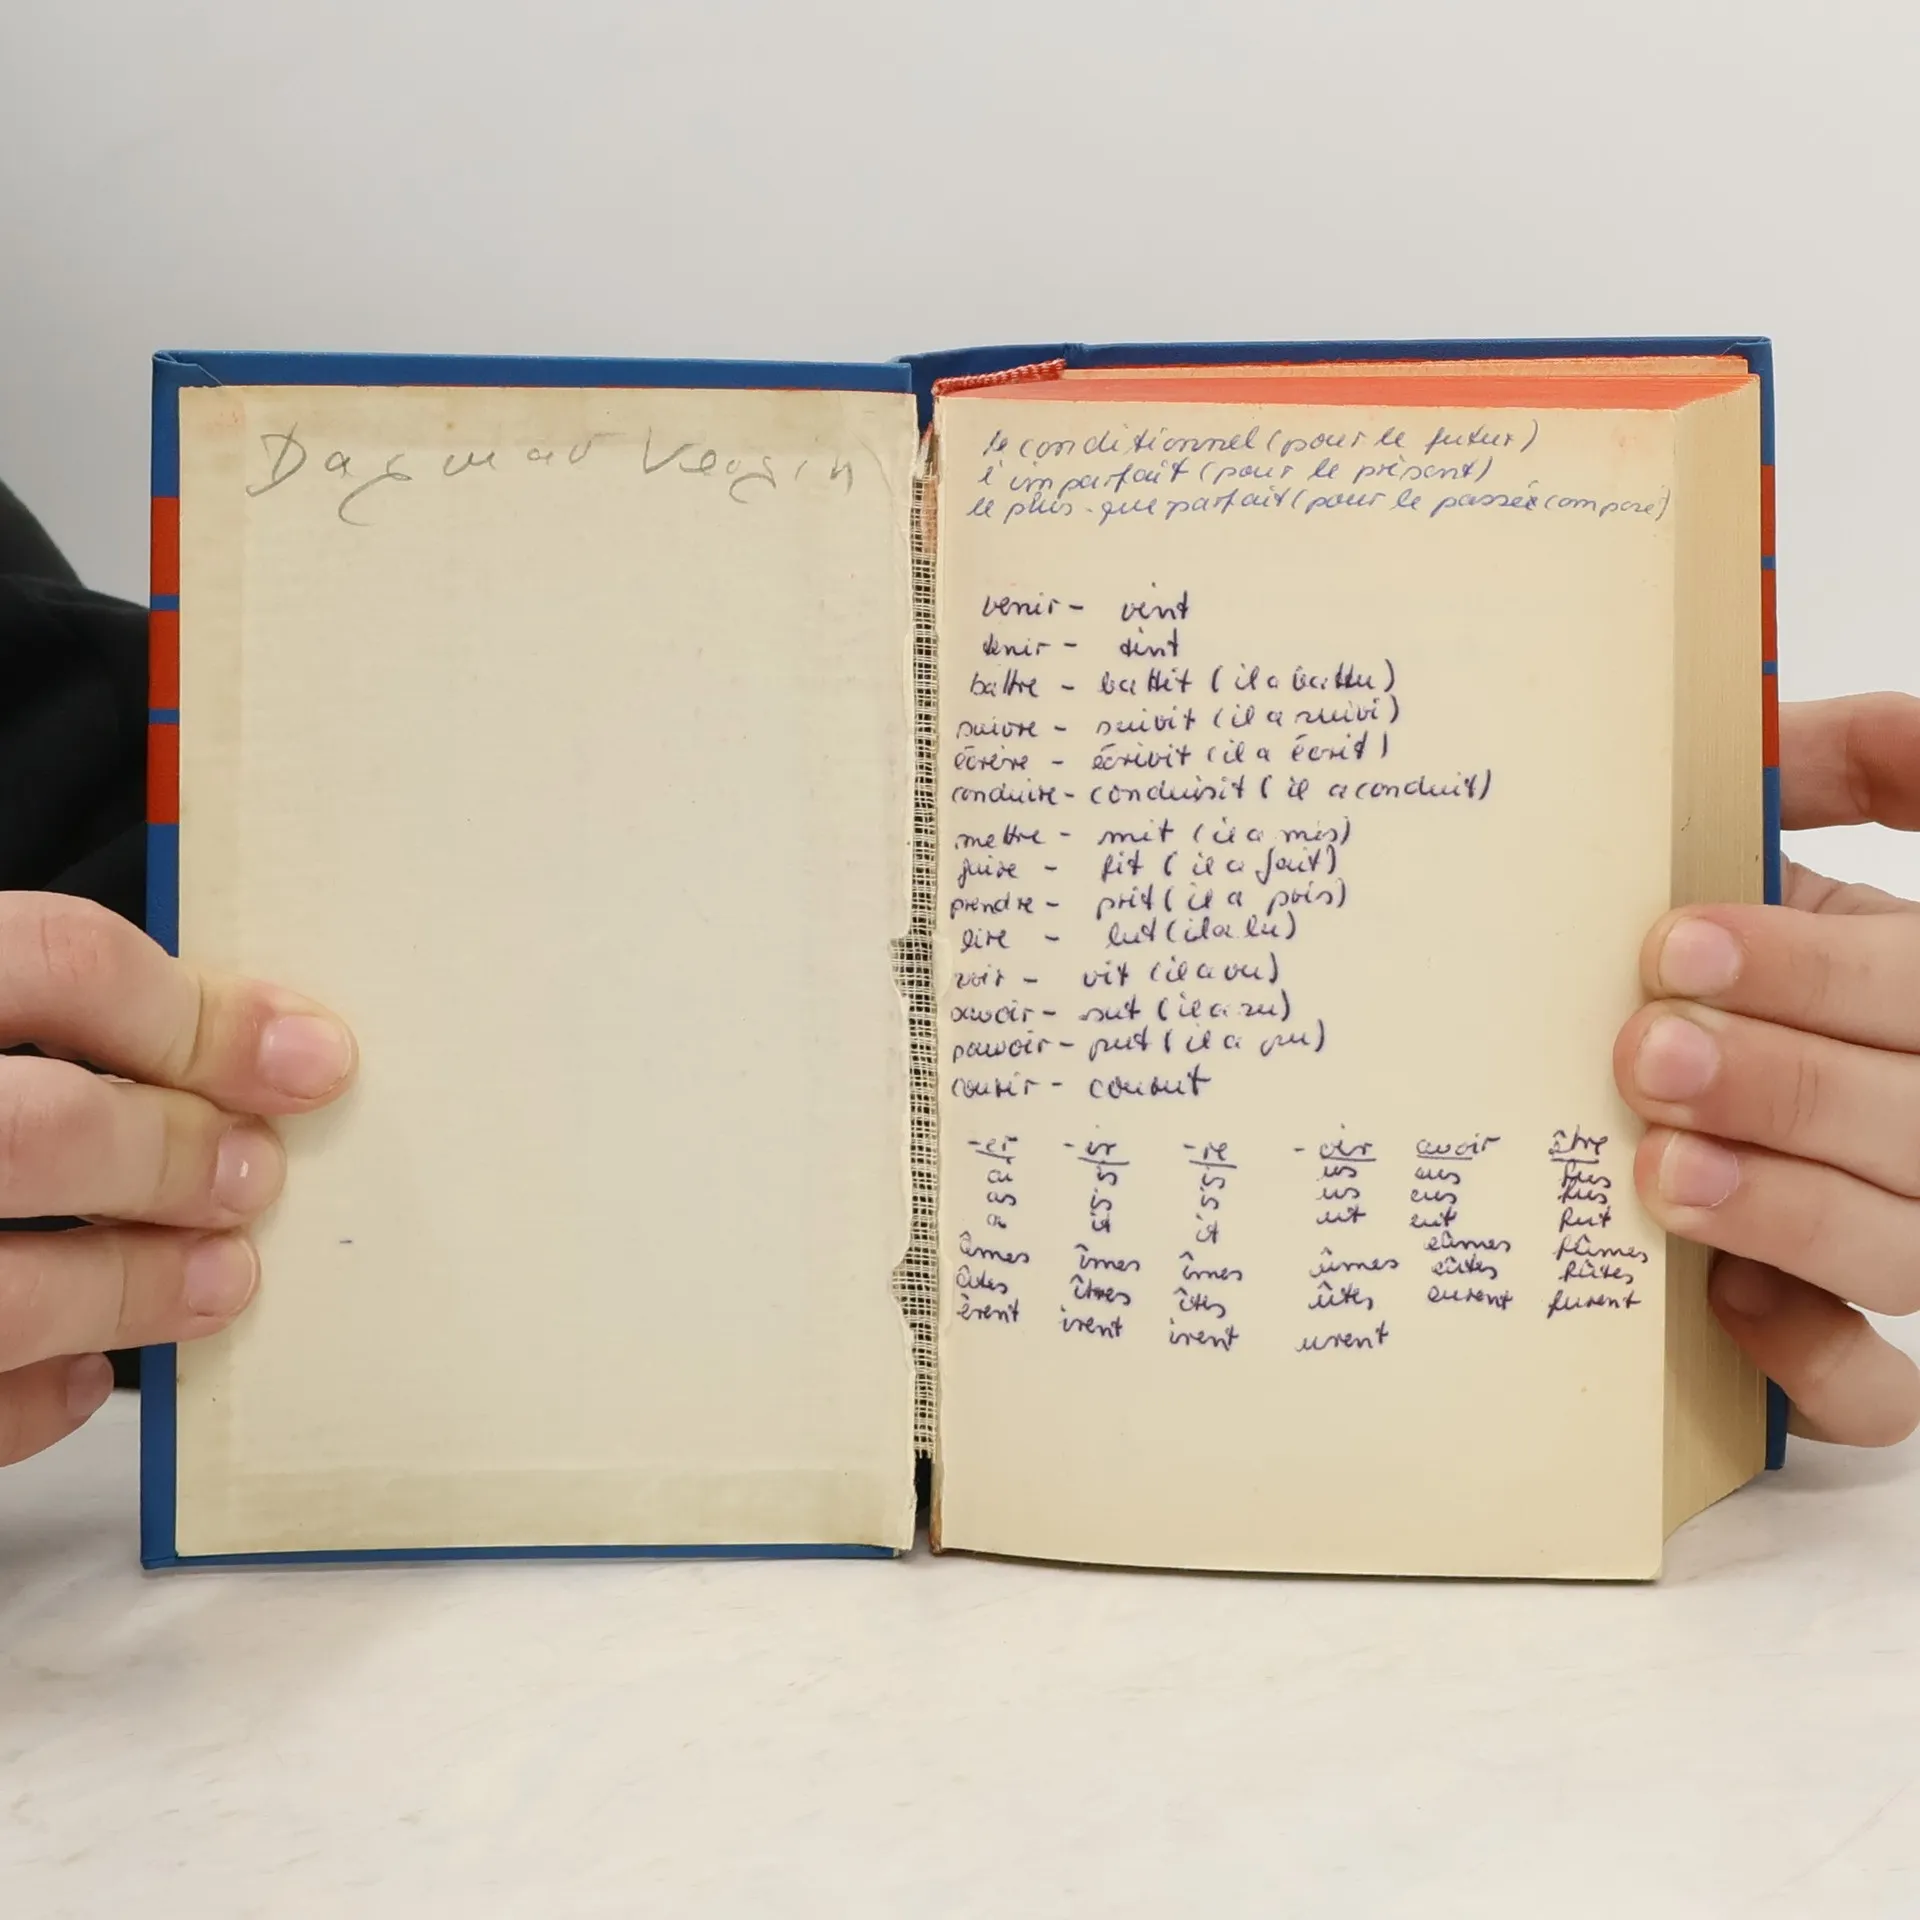 Dagmar
le conditionnel (pour le futur)
l'imparfait (pour le présent)
le plus-que parfait (pour le passée composé)
venir - vint
tenir - tint
battre - battit (il a battu)
suivre - suivit (il a suivi)
écrire - écrivit (il a écrit)
conduire - conduisit (il a conduit)
mettre - mit (il a mis)
faire - fit (il a fait)
prendre - prit (il a pris)
lire - lut (il a lu)
voir - vit (il a vu)
savoir - sut (il a su)
pouvoir - put (il a pu)
courir - courut
-er -ir -re -oir avoir être
ai is is us eus fus
as is is us eus fus
a it it ut eut fut
âmes îmes îmes ûmes eûmes fûmes
âtes îtes îtes ûtes eûtes fûtes
èrent irent irent urent eurent furent